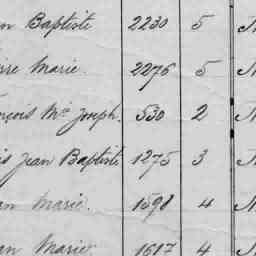 n Baptiste 2230 5
rre Marie 2276 5
nçois Mie Joseph. 530 2
is Jean Baptiste 1275 3
an Marie. 1598 4
an Marie 1617 4